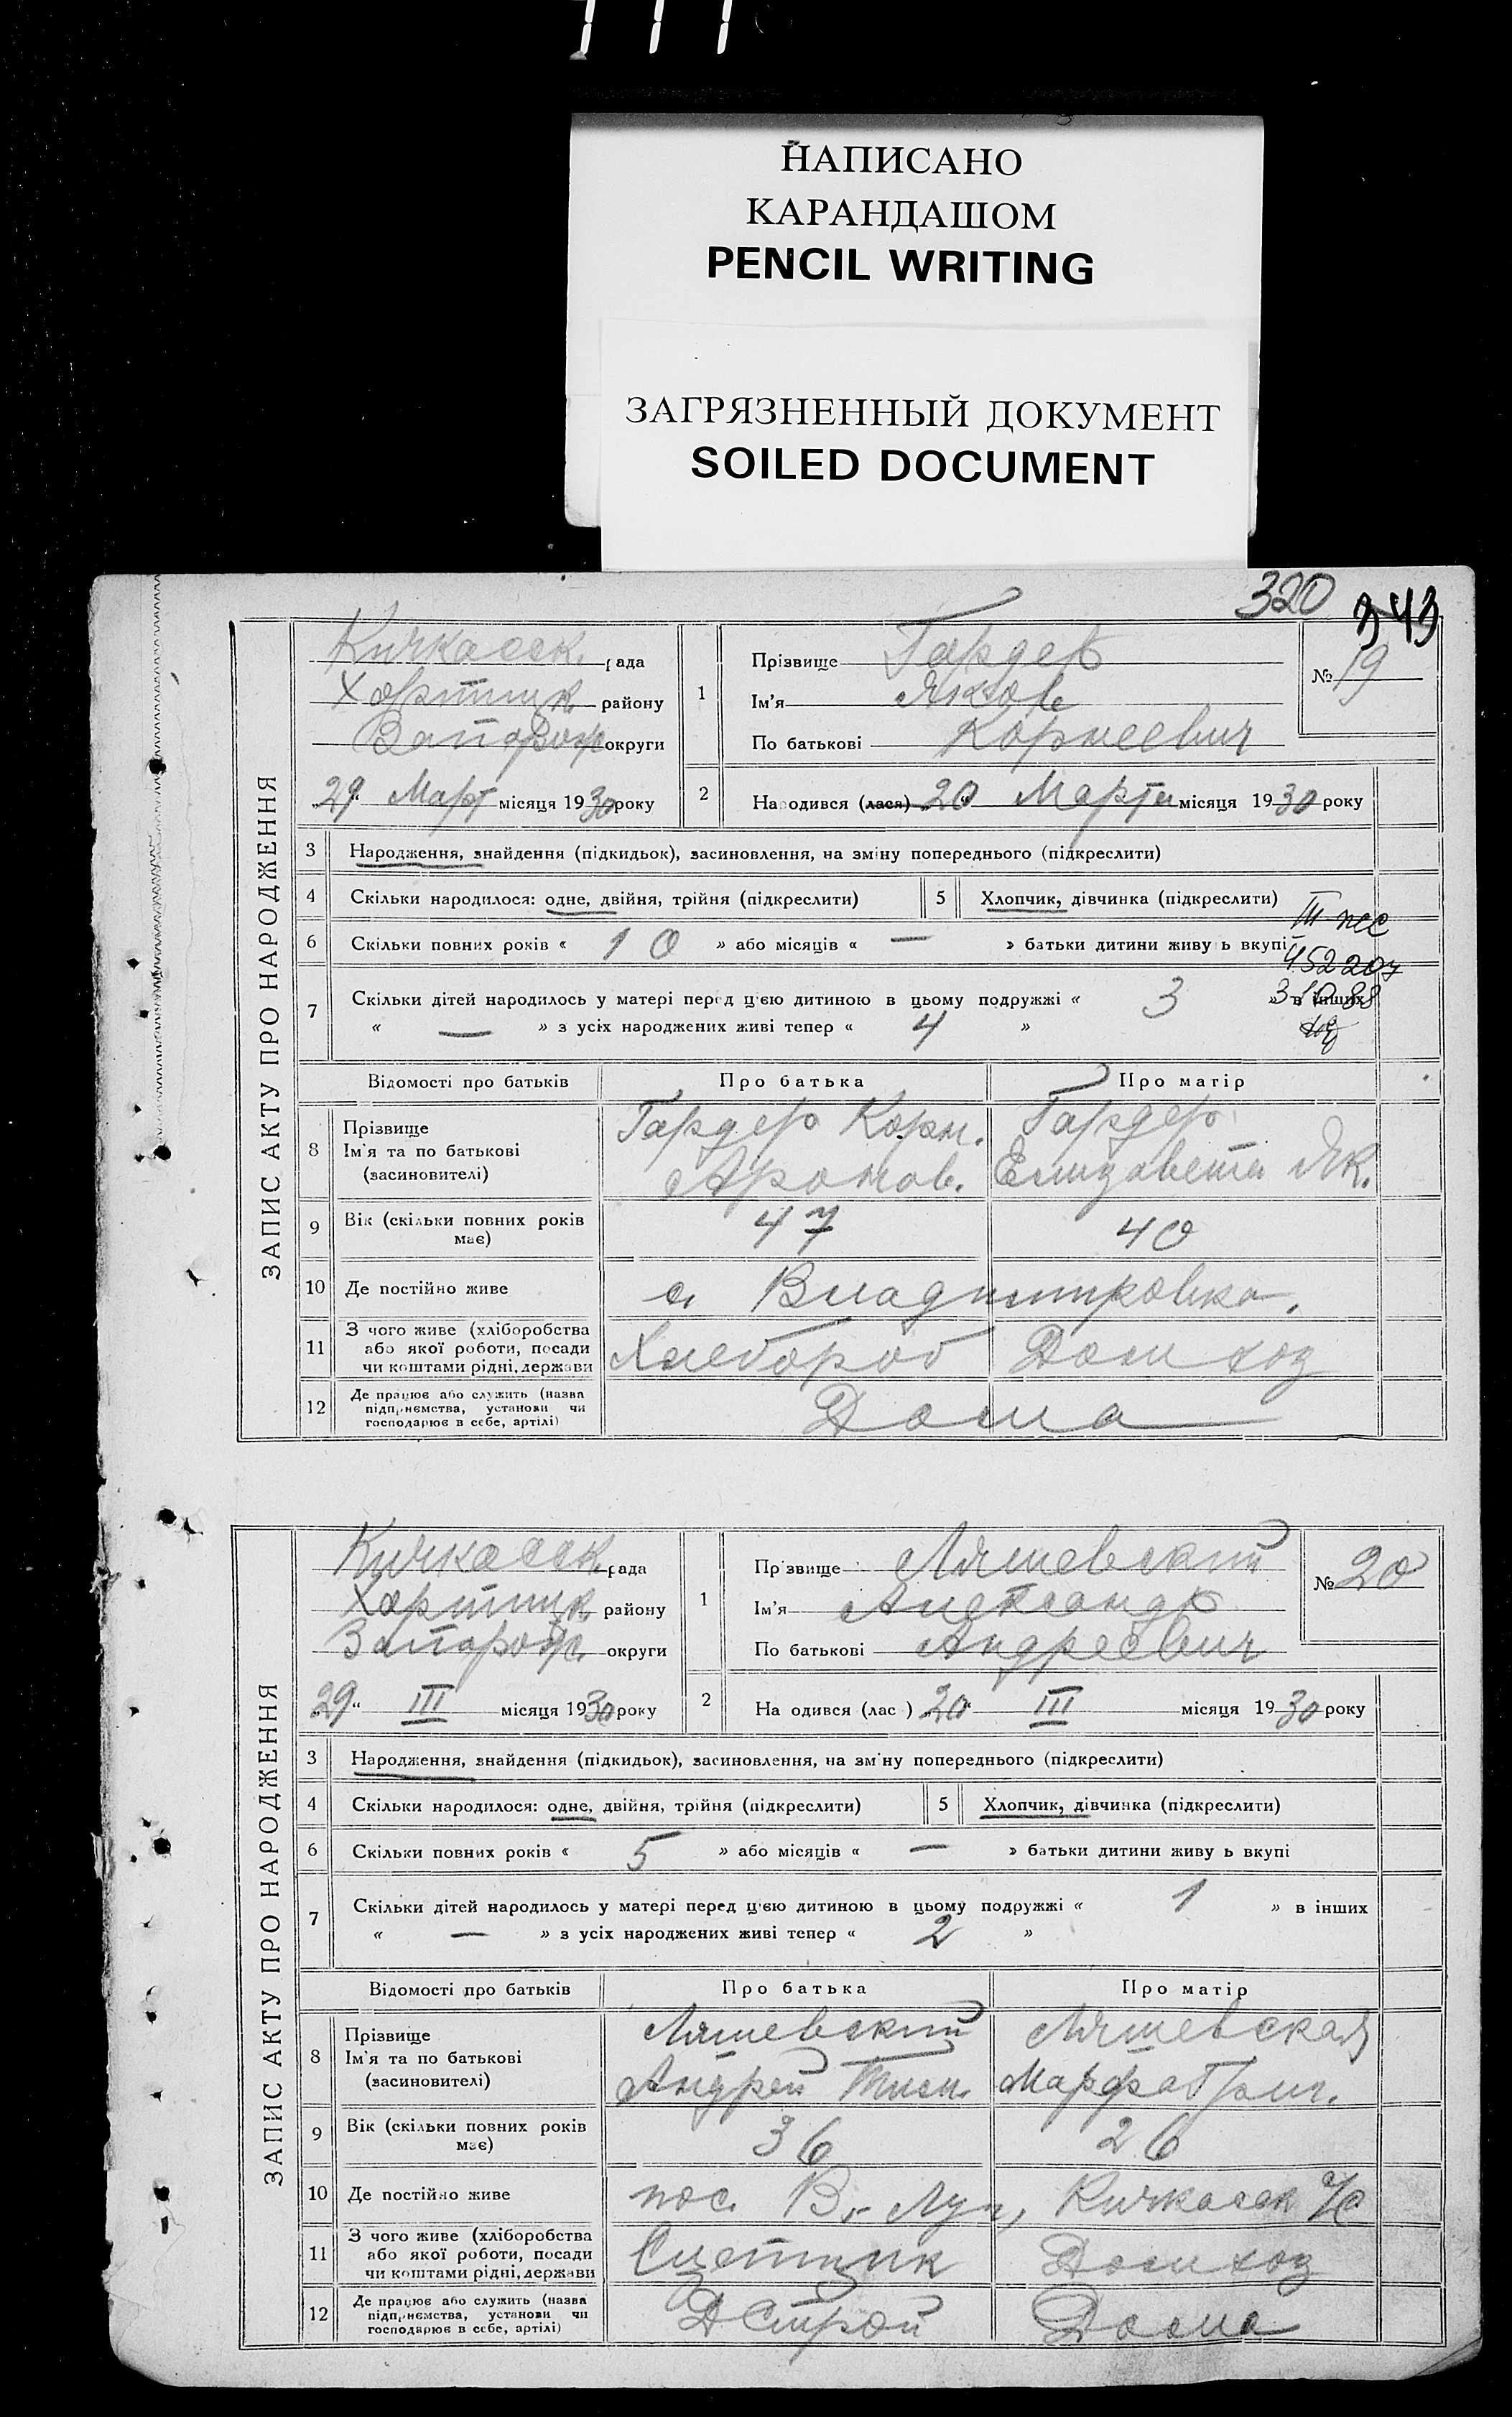 НАПИСАНО
КАРАНДАШОМ
PENCIL WRITING
ЗАГРЯЗНЕННЫЙ ДОКУМЕНТ
SOILED DOCUMENT
320 343
ЗАПИС АКТУ ПРО НАРОДЖЕННЯ
Кичкасск. рада
Хортицк району
Запорож округи
„29“ Март місяця 1930 року
1 Прізвище Гардер
Ім'я Яков
По батькові Корнеевич
№ 19
2 Народився (лася) „20“ Марта місяця 1930 року
3 Народження, знайдення (підкидьок), засиновлення, на зміну попереднього (підкреслити)
4 Скільки народилося: одне, двійня, трійня (підкреслити) 5 Хлопчик, дівчинка (підкреслити)
6 Скільки повних років « 10 » або місяців « — » батьки дитини живуь вкупі
III
452207
7 Скільки дітей народилось у матері перед цією дитиною в цьому подружжі « 3 » в інших
« — » з усіх народжених живі тепер « 4 »
Відомості про батьків Про батька Про матір
8 Прізвище
Ім'я та по батькові
(засиновителі)
Гардер Корн.
Аронов.
Гардер
Елизавета Як.
9 Вік (скільки повних років має) 47 40
10 Де постійно живе с. Владимировка.
11 З чого живе (хліборобства
або якої роботи, посади
чи коштами рідні, держави
Хлебороб Дом хоз
12 Де працює або служить (назва
підприємства, установи чи
господарює в себе, артілі)
Дома
ЗАПИС АКТУ ПРО НАРОДЖЕННЯ
Кичкасск. рада
Хортицк району
Запорож. округи
29“ III місяця 1930 року
1 Прзвище Ляшевский
Ім'я Александр
По батькові Андреевич
№ 20
2 На одився (лас ) 20“ III місяця 1930 року
3 Народження, знайдення (підкидьок), засиновлення, на зміну попереднього (підкреслити)
4 Скільки народилося: одне, двійня, трійня (підкреслити) 5 Хлопчик, дівчинка (підкреслити)
6 Скільки повних років « 5 » або місяців « — » батьки дитини живу ь вкупі
7 Скільки дітей народилось у матері перед цією дитиною в цьому подружжі « 1 » в інших
« — » з усіх народжених живі тепер « 2 »
Відомості про батьків Про батька Про матір
8 Прізвище
Ім'я та по батькові
(засиновителі)
Ляшевский
Андрей Тим.
Ляшевская
Марфа Григ.
9 Вік (скільки повних років має) 36 26
10 Де постійно живе пос. В.- Луг, Кичкасск с/с
11 З чого живе (хліборобства
або якої роботи, посади
чи коштами рідні, держави
Счетчик Дом хоз
12 Де працює або служить (назва
підприємства, установи чи
господарює в себе, артілі)
ДСтрой Дома